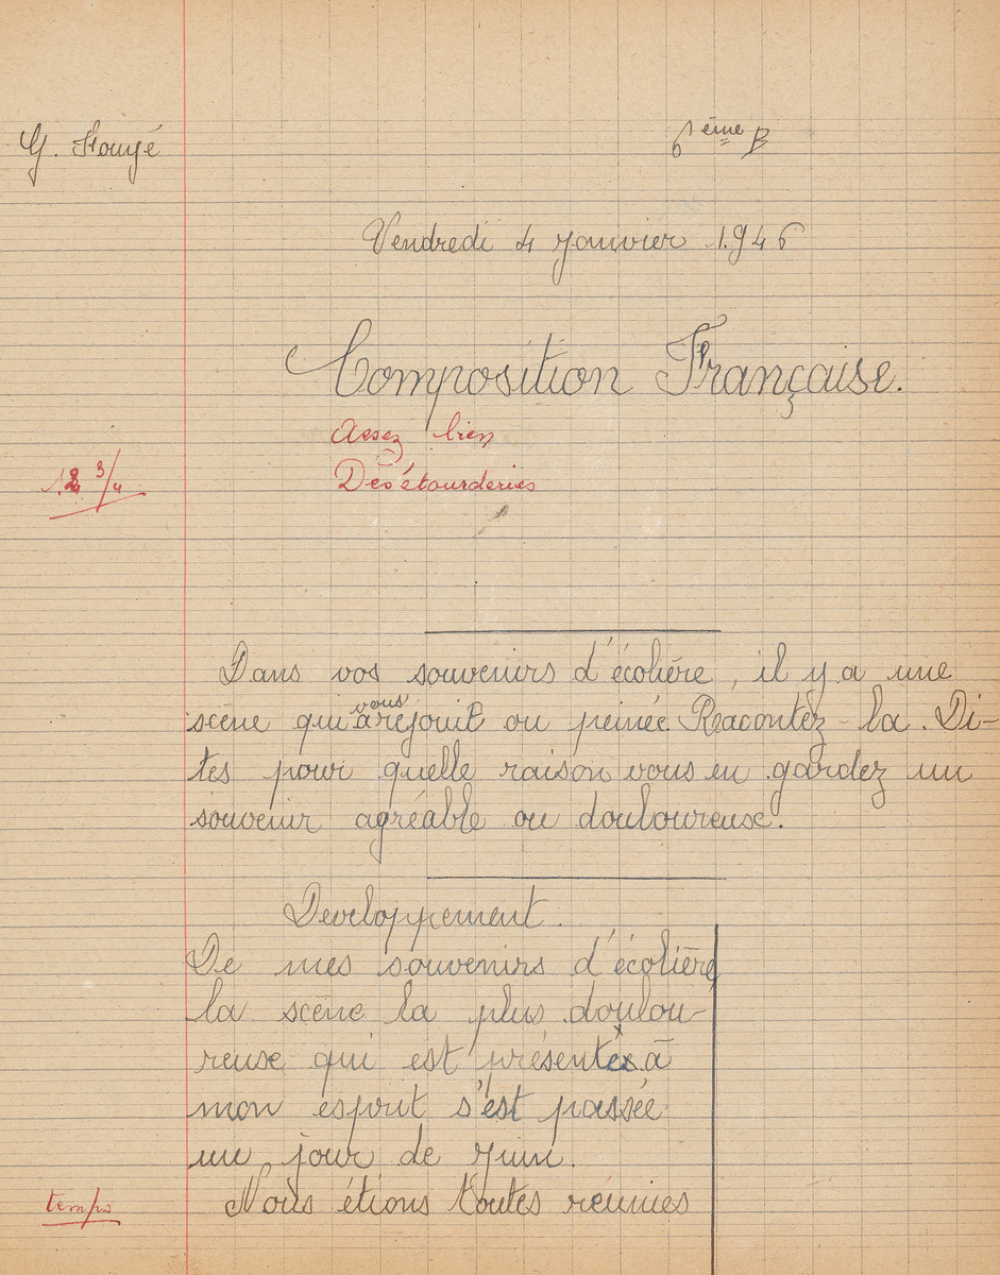 G. Fougé
6ème B
Vendredi 4 Janvier 1946
Composition Française.
Assez bien
12 3/4
Des étourderies
Dans vos souvenirs d'écolière, il y a une
scène qui vous a rejouit ou peinée. Racontez-la. Di-
tes pour quelle raison vous en gardez un
souvenir agréable ou douloureuse.
Developpement.
De mes souvenirs d'écolière
la scène la plus doulou-
reuse qui est présentée à
mon esprit s'est passée
un jour de Juin.
temps
Nous étions toutes réunies